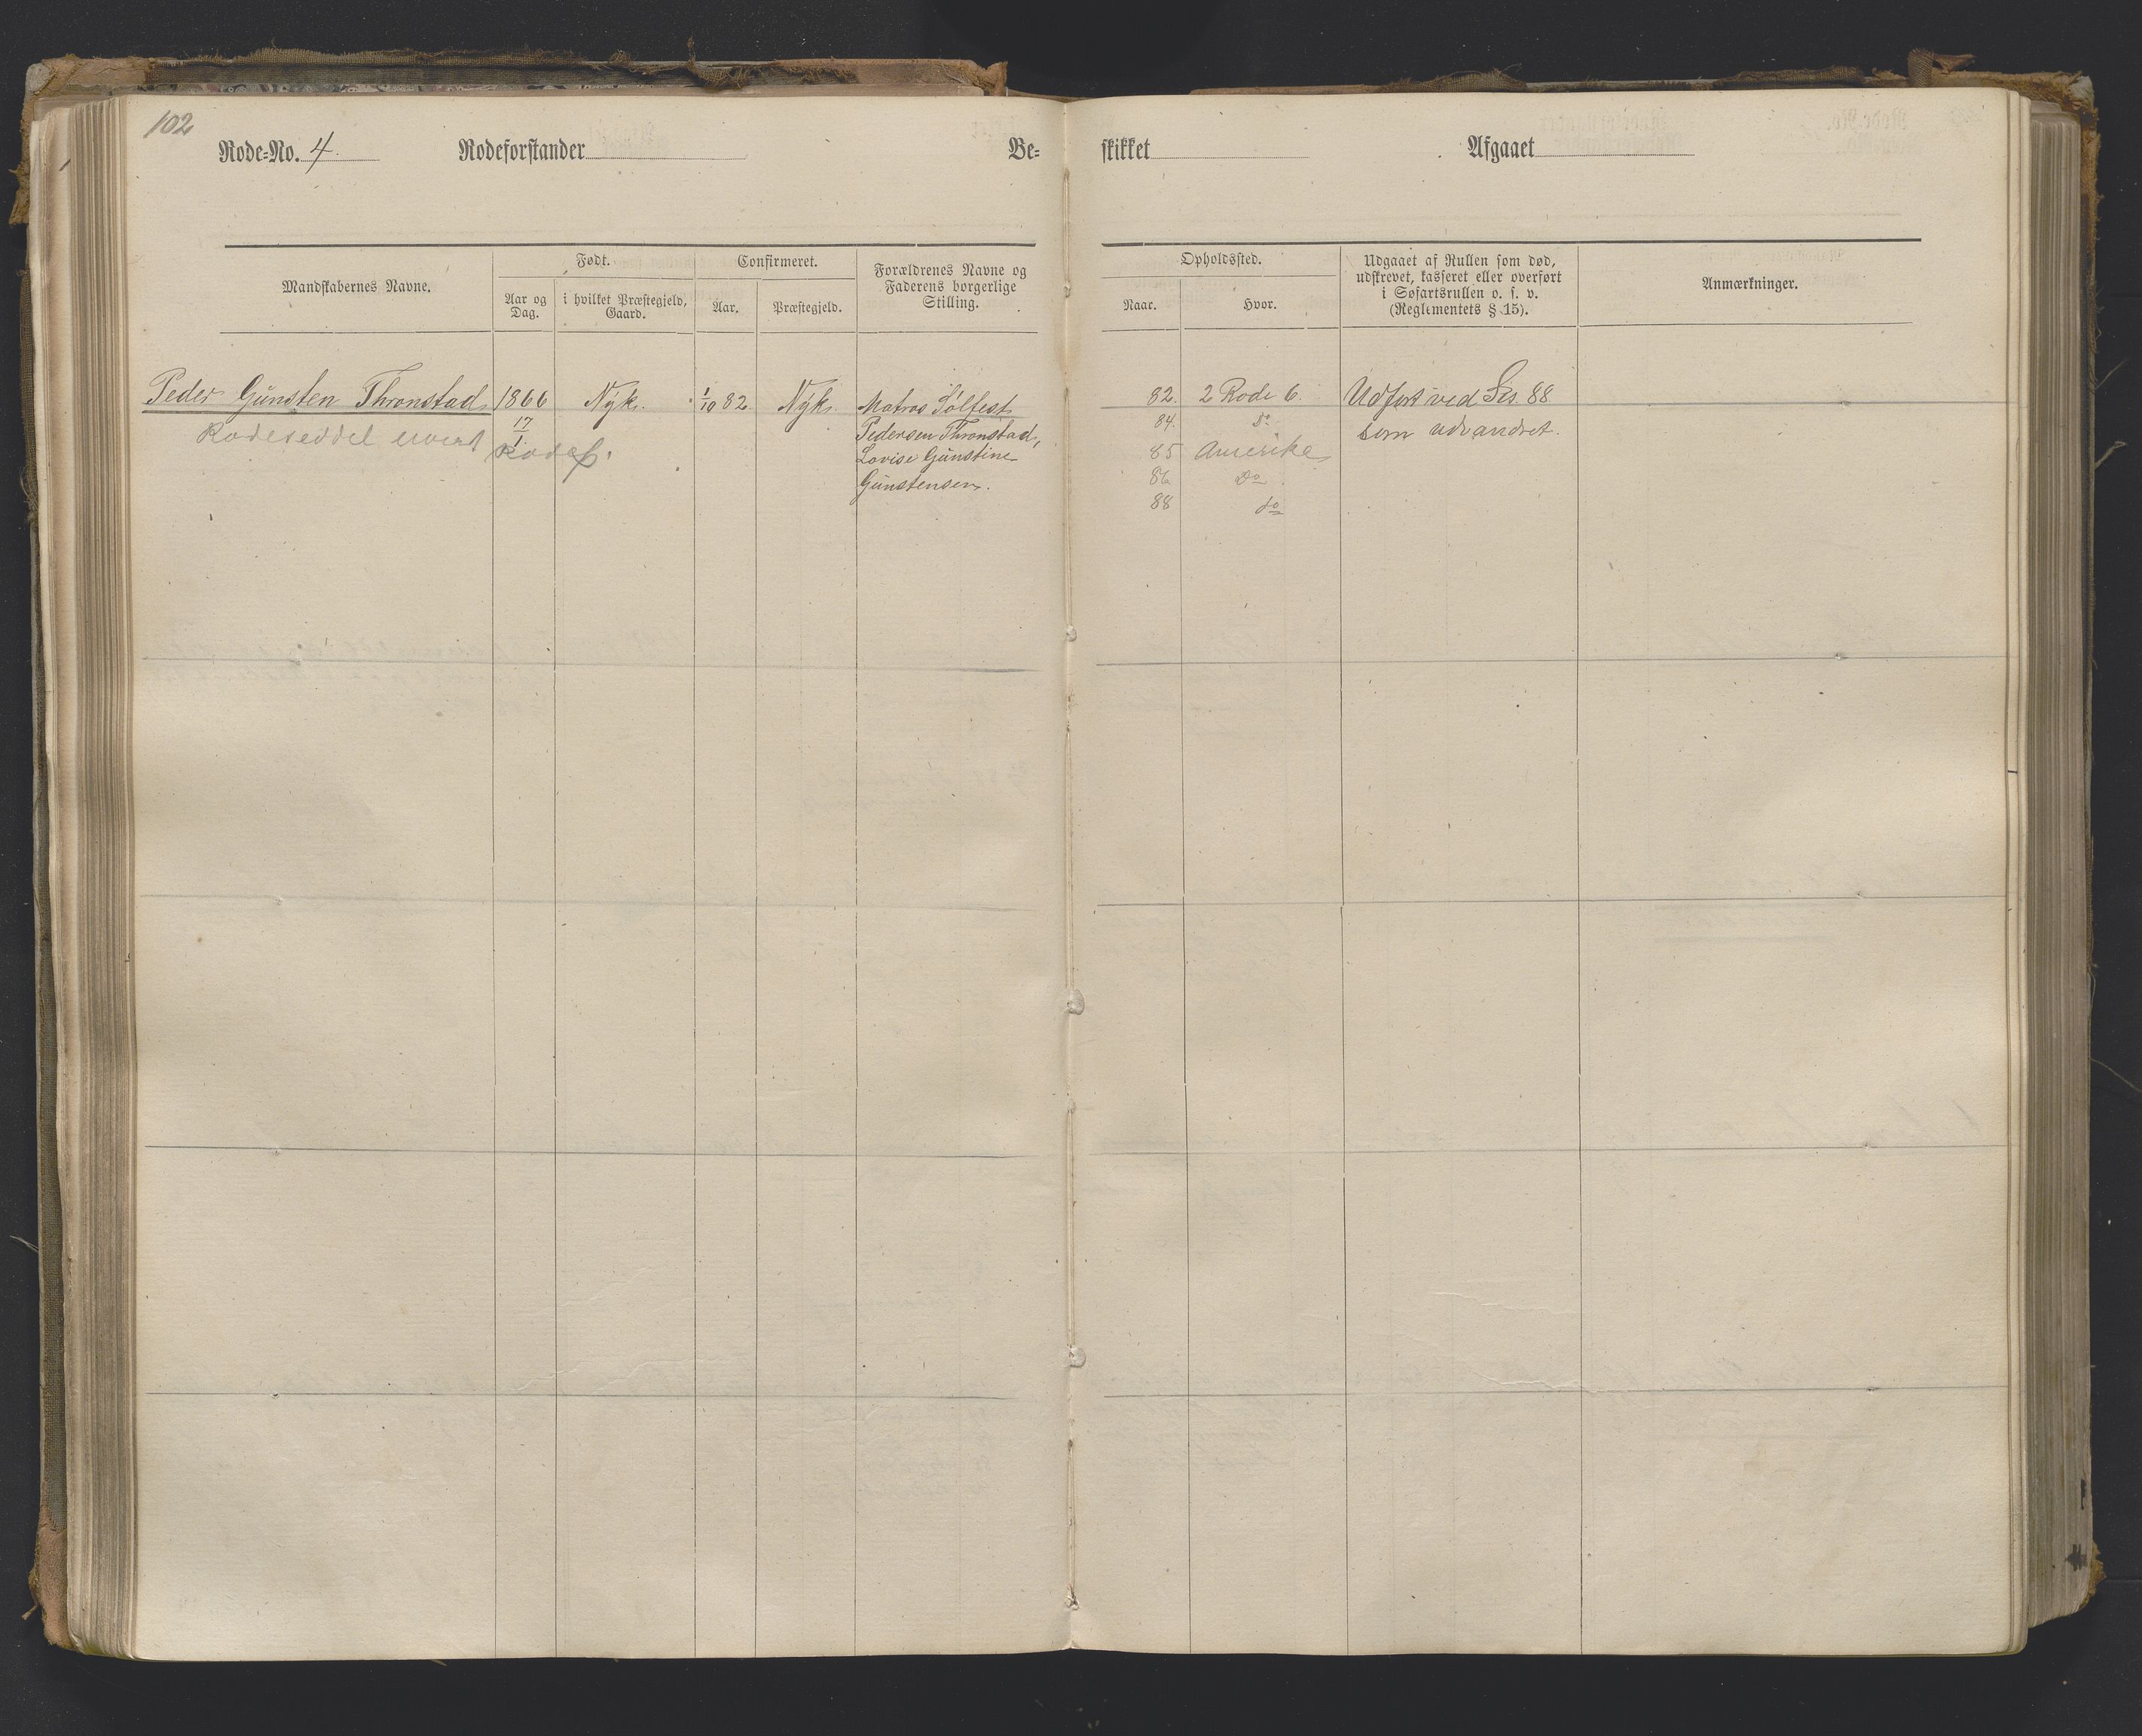 102
Rode=No. 4. Rodeforstander Be= skikket Afgaaet
Mandskabernes Navne.
Født.
Aar og Dag.
i hvilket Præstegjeld, Gaard.
Confirmeret.
Aar.
Præstegjeld.
Forældrenes Navne og
Faderens borgerlige
Stilling.
Opholdssted.
Naar.
Hvor.
Udgaaet af Rullen som død,
udskrevet, kasseret eller overført
i Søfartsrullen o. s. v.
(Reglementets § 15).
Anmærkninger.
Peder Günsten Thronstad 1866 Nyk. 1/10 82. Nyk.
17/1
Rodeseddel Rode 6.
Matros Sølfest
Pedersen Thronstad,
Lovise Günstine
Günstensen.
82. 2 Rode 6.
84. do
85 Amerika
86 Do
88 do
Udført ved Ses. 88
som udvandret.